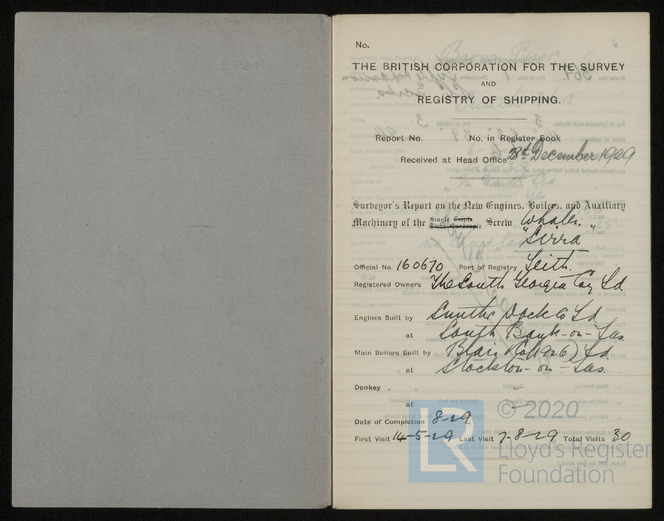 No.
THE BRITISH CORPORATION FOR THE SURVEY
AND
REGISTRY OF SHIPPING.
Report No. No. in Register Book
Received at Head Office 3rd December 1929
Surveyor's Report on the New Engines, Boilers, and Auxiliary
Machinery of the Single Triple Twin Quadruple Screw Whaler
"Sirra"
Official No. 160670 Port of Registry Leith.
Registered Owners The South Georgia Coy Ld
Engines Built by Smiths Dock Co Ld
at South Bank-on-Tees
Main Boilers Built by Blair & Co (1926) Ld
" at Stockton-on-Tees.
Donkey " " -
at -
Date of Completion 8-29.
First Visit 14-5-29 Last Visit 7-8-29 Total Visits 30
LR © 2020
Lloyd's Register
Foundation